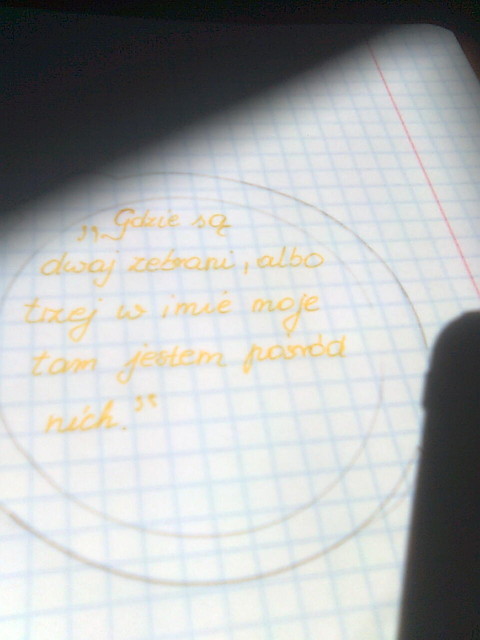 „Gdzie są
dwaj zebrani, albo
trzej w imie moje
tam jestem pośród
nich."